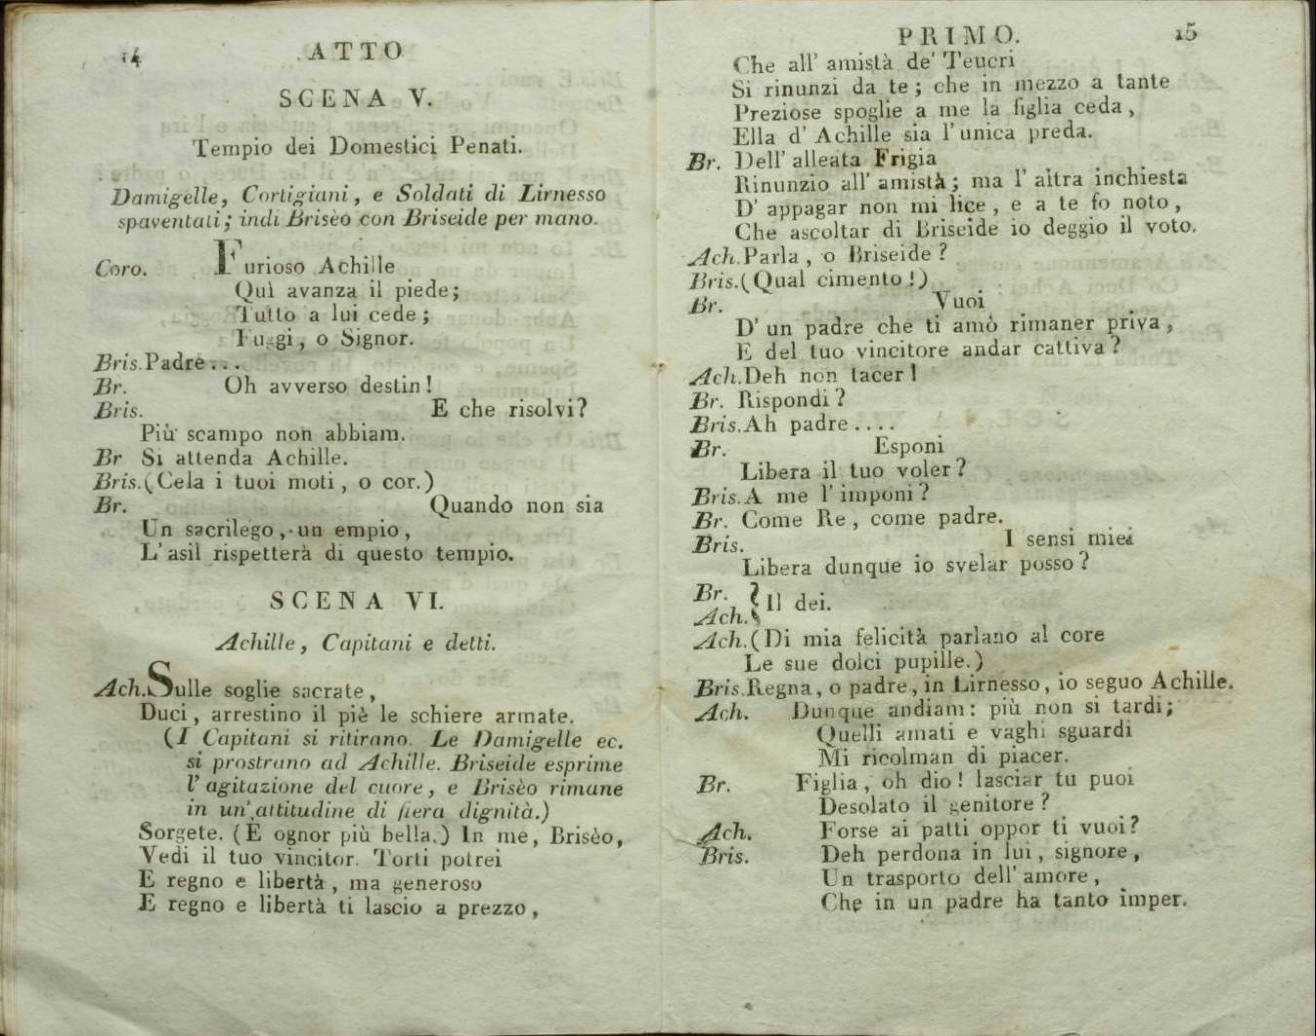 14 ATTO
SCENA V.
Tempio dei Domestici Penati.
Damigelle, Cortigiani, e Soldati di Lirnesso
spaventati; indi Brisèo con Briseide per mano.
Coro. Furioso Achille
Quì avanza il piede;
Tutto a lui cede;
Fuggi, o Signor.
Bris. Padre...
Br. Oh avverso destin!
Bris. E che risolvi?
Più scampo non abbiam.
Br Si attenda Achille.
Bris. (Cela i tuoi moti, o cor.)
Br. Quando non sia
Un sacrilego, un empio,
L'asil rispetterà di questo tempio.
SCENA VI.
Achille, Capitani e detti.
Ach. Sulle soglie sacrate,
Duci, arrestino il piè le schiere armate.
(I Capitani si ritirano. Le Damigelle ec.
si prostrano ad Achille. Briseide esprime
l'agitazione del cuore, e Brisèo rimane
in un'attitudine di fiera dignità.)
Sorgete. (E ognor più bella.) In me, Brisèo,
Vedi il tuo vincitor. Torti potrei
E regno e libertà, ma generoso
E regno e libertà ti lascio a prezzo,
PRIMO. 15
Che all' amistà de' Teucri
Si rinunzi da te; che in mezzo a tante
Preziose spoglie a me la figlia ceda,
Ella d' Achille sia l'unica preda.
Br. Dell' alleata Frigia
Rinunzio all' amistà; ma l' altra inchiesta
D' appagar non mi lice, e a te fo noto,
Che ascoltar di Briseide io deggio il voto.
Ach. Parla, o Briseide?
Bris. (Qual cimento!)
Br. Vuoi
D' un padre che ti amò rimaner priva,
E del tuo vincitore andar cattiva?
Ach. Deh non tacer!
Br. Rispondi?
Bris. Ah padre....
Br. Esponi
Libera il tuo voler?
Bris. A me l' imponi?
Br. Come Re, come padre.
Bris. I sensi miei
Libera dunque io svelar posso?
Br. } Il dei.
Ach.
Ach. (Di mia felicità parlano al core
Le sue dolci pupille.)
Bris. Regna, o padre, in Lirnesso, io seguo Achille.
Ach. Dunque andiam: più non si tardi;
Quelli amati e vaghi sguardi
Mi ricolman di piacer.
Br. Figlia, oh dio! lasciar tu puoi
Desolato il genitore?
Ach. Forse ai patti oppor ti vuoi?
Bris. Deh perdona in lui, signore,
Un trasporto dell' amore,
Che in un padre ha tanto imper.